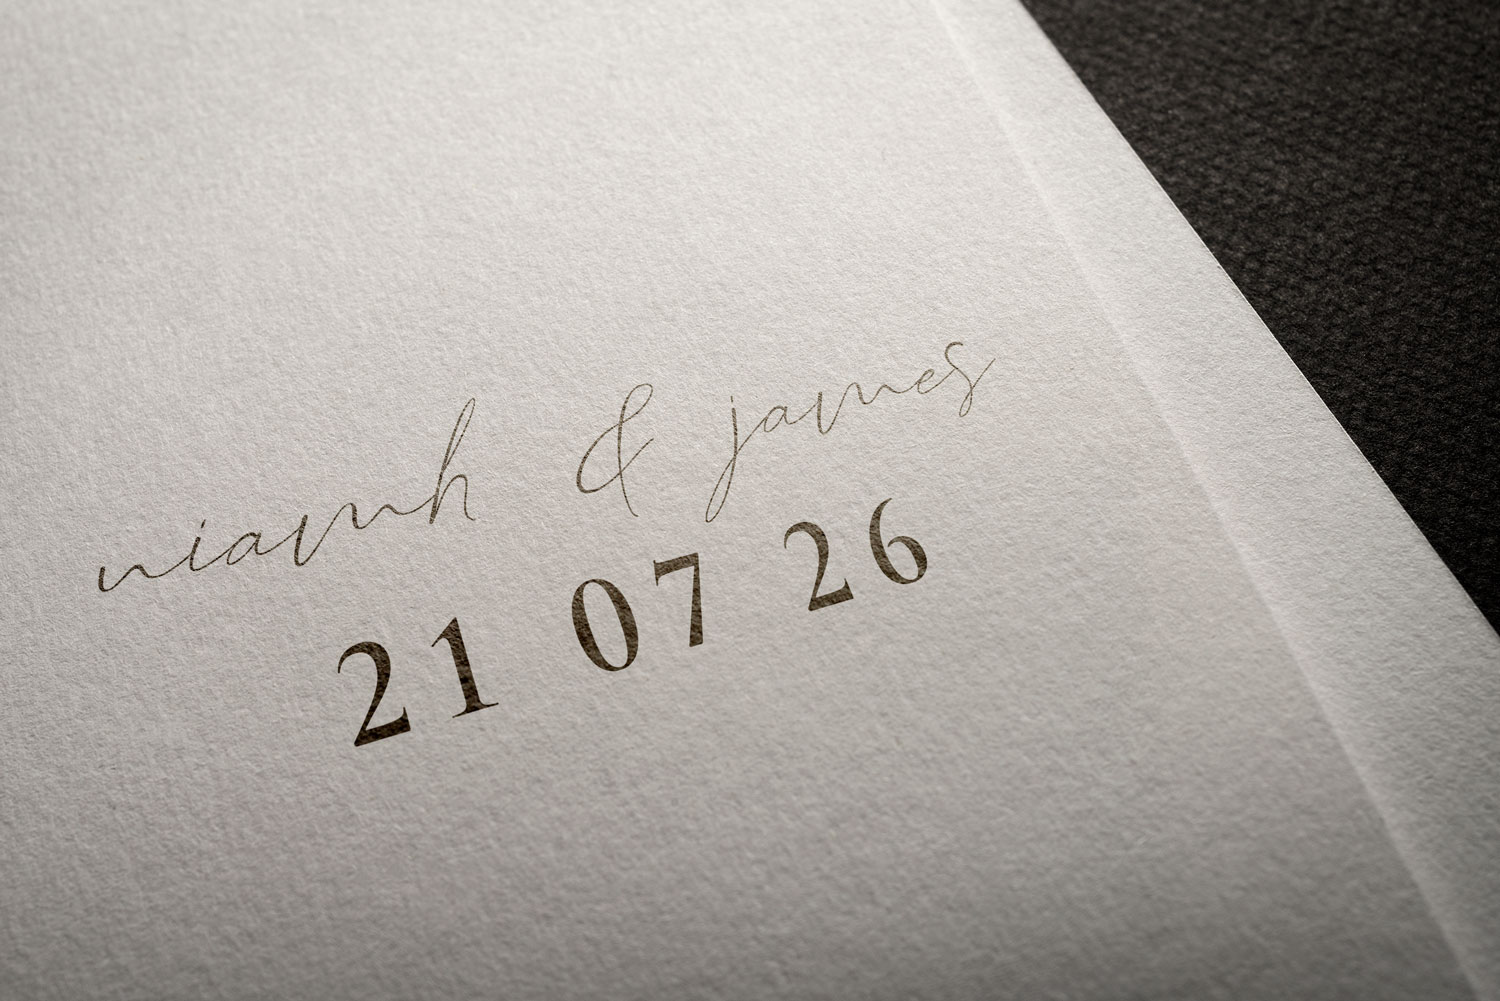 niamh & james
21 07 26